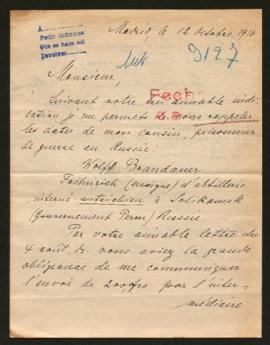 Madrid le 12 Octobre 1916
A
9127
Monsieur,
Suivant votre très aimable indi-
cation je me permets de vous rappeler
les actes de mon cousin, prisonnier
de guerre en Russie:
Wolff Brandauer
Faehnrich (enseigne) d'artillerie
interné autrichien à Solikamsk
(Gouvernement Perm) Russie.
Par votre aimable lettre du
4 août vous aviez la grande
obligeance de me communiquer
l'envoi de par l'inter-
médiaire